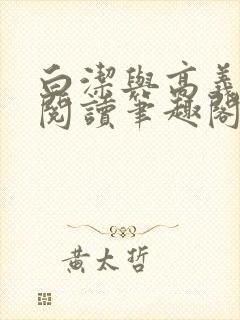 白潔與高義
閱讀筆趣閣
黃太哲